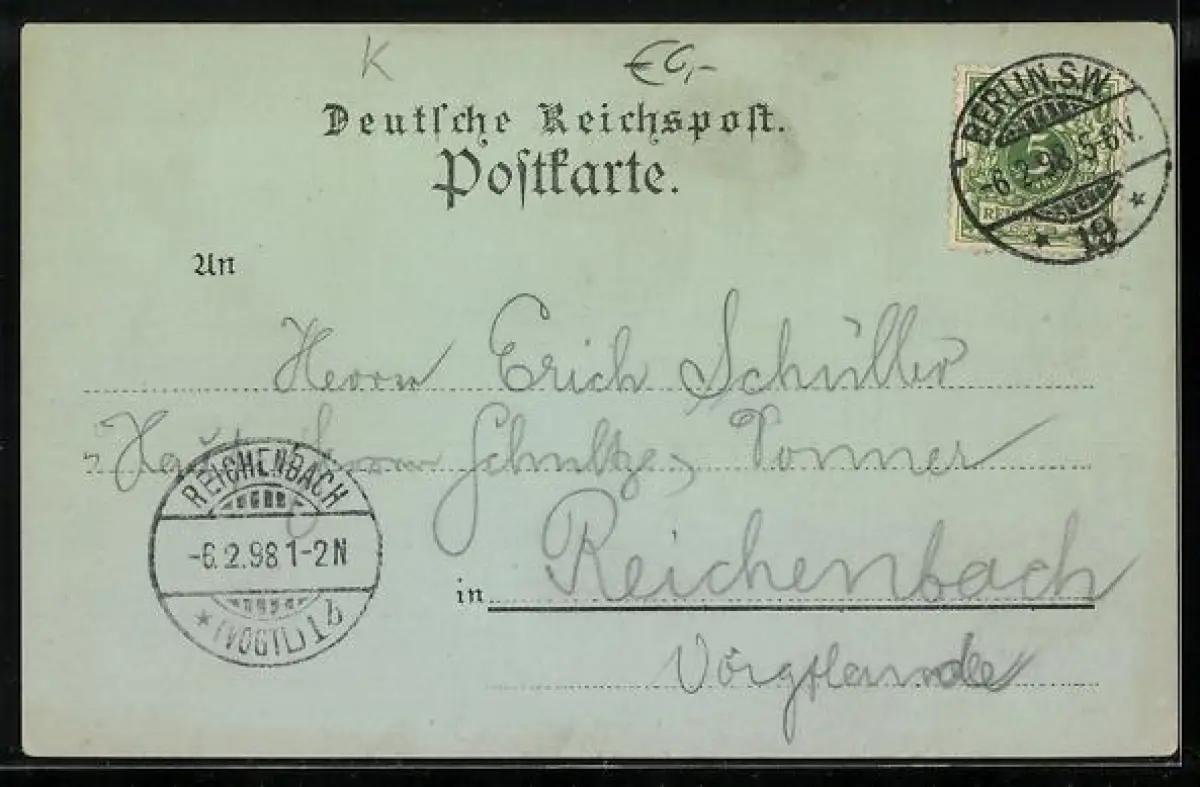 K €6,-
Deutsche Reichspost.
Postkarte.
BERLIN.S.W.
-6.2.98.5-6V.
* 19 *
5
An
Herrn Erich Schüller
Herrn Schultze,
REICHENBACH
-6.2.98 1-2N
* (VOGTL.) 1b
in Reichenbach
Voigtlande